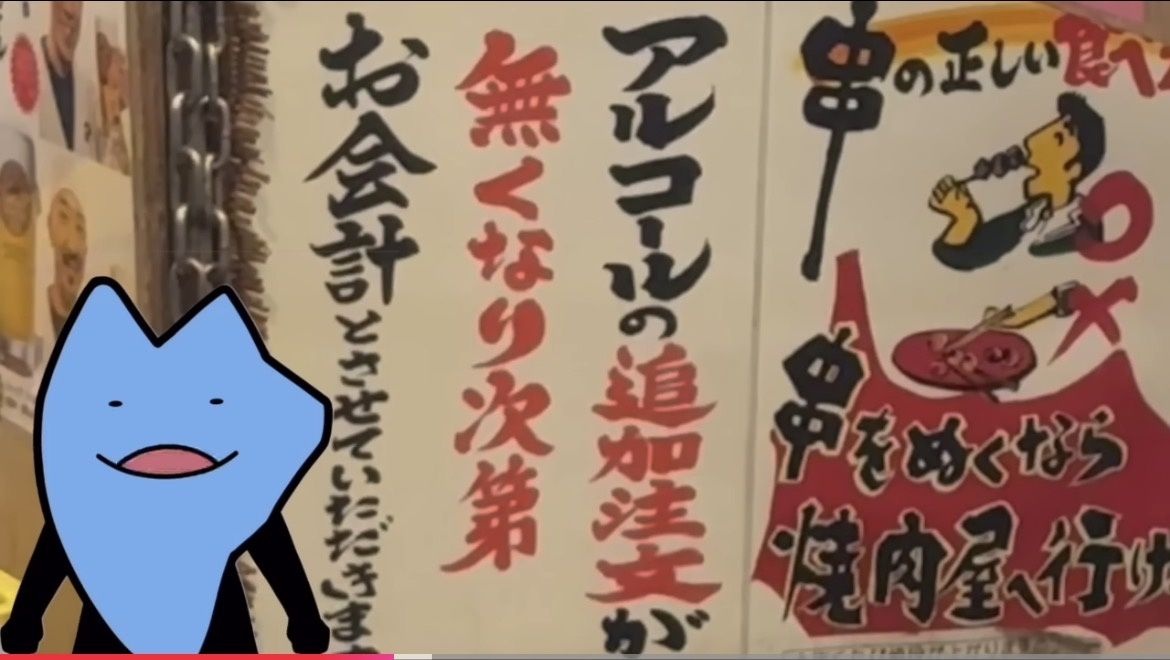 串の正しい食べ
串をぬくなら
焼肉屋へ行け
アルコールの追加注文が
無くなり次第
お会計とさせていただきます